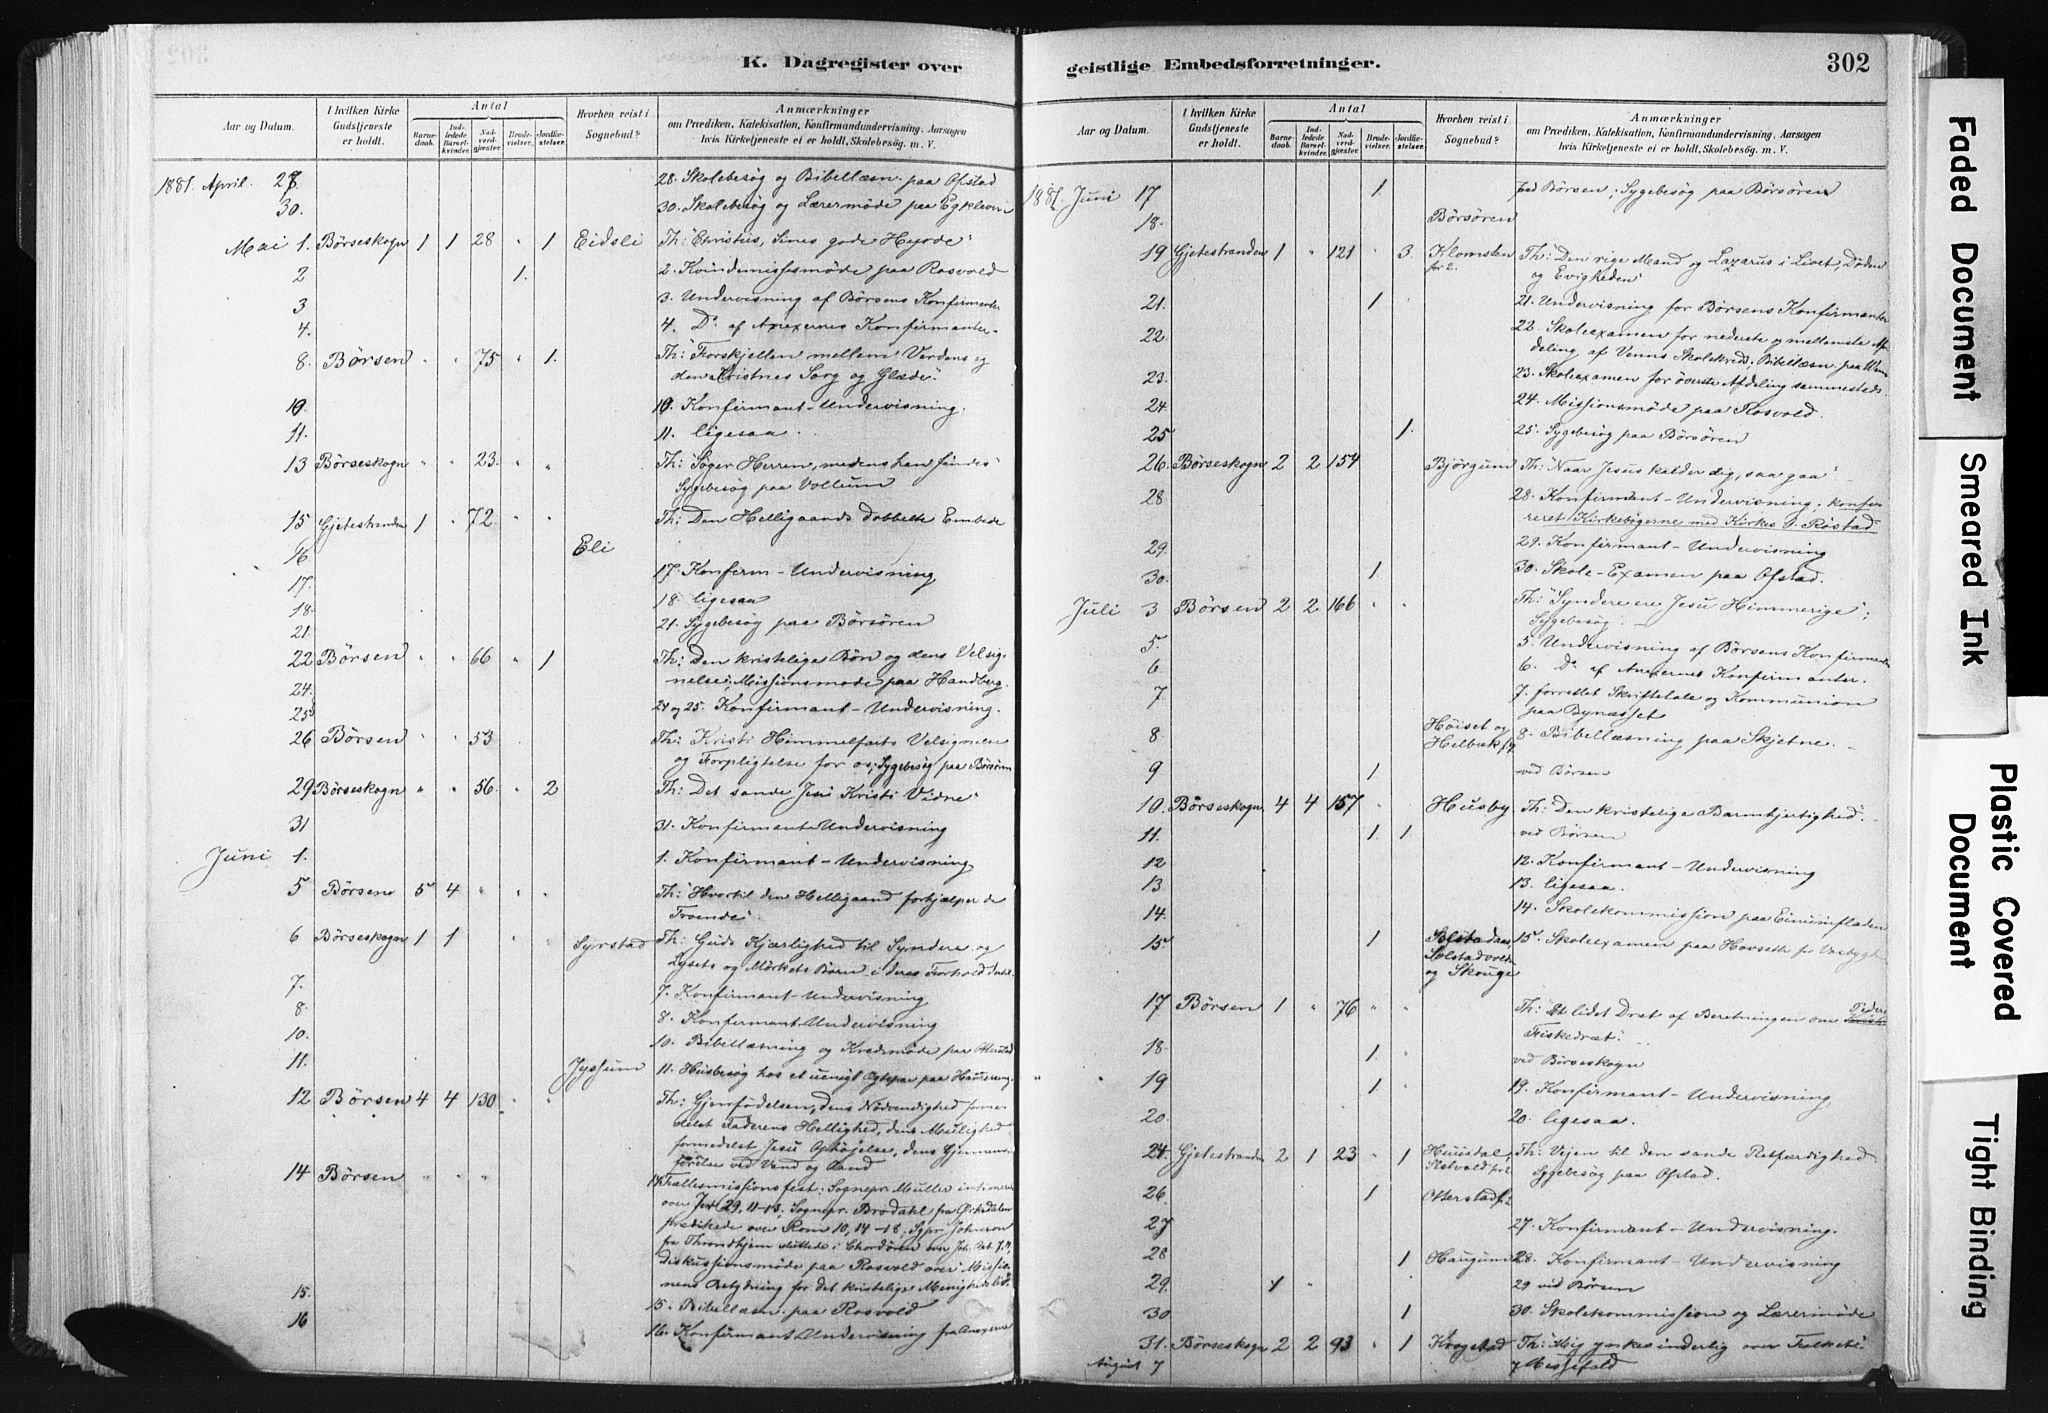 K. Dagregister over
geistlige Embedsforretninger.
302
Aar og Datum.
I hvilken Kirke Gudstjeneste er holdt.
Antal
Barnedaab.
Indledede Barselkvinder.
Nadverdgjæster.
Brudevielser.
Jordfæstelser.
Hvorhen reist i Sognebud?
Anmærkninger
om Prædiken, Katekisation, Konfirmandundervisning, Aarsagen
hvis Kirketjeneste ei er holdt, Skolebesøg. m. V.
1881. April. 28. Skolebesøg og Bibellæsn. paa Ofstad
30. 30. Skolebesøg og Lærermøde paa Egkleven
Mai 1. Børseskogn 1 1 28 " 1 Eidsli Th: "Christus, Sines gode Hyrde"
2 1. 2. Kvindemissionsmøde paa Rosvold
3 3. Undervisning af Børsens Konfirmanter
4. 4. Do af Anexernes Konfirmanter-
8. Børsen " " 75 " 1. Th: "Forskjellen mellem Verdens og
den Kristnes Sorg og Glæde".
10. 10. Konfirmant-Undervisning.
11. 11. ligesaa.
13 Børseskogn " " 23. " " Th: "Søger Herren, medens han findes"
Sygebesøg paa Vollum
15 Gjetestranden 1 " 72 " " Th: Den Helligaands dobbelte Embede
16. Eli
17. 17. Konfirm-Undervisning,
18. 18. ligesaa
21. 21. Sygebesøg paa Børsøren
22 Børsen " " 66 " 1 Th: Den kristelige Bøn og dens Velsig-
nelse; Missionsmøde paa Handberg.
24. 24 og 25. Konfirmant-Undervisning.
25
26 Børsen " " 53 Th: Kristi Himmelfarts Velsignelse
og Forpligtelse for os; Sygebesøg paa Børsøren
29 Børseskogn " " 56 " 2 Th: "Det sande Jesu Kristi Vidne"
31 31. Konfirmant-Undervisning
Juni 1. 1. Konfirmant-Undervisning
5 Børsen 5 4 " " " Th: "Hvortil den Helligaand forhjælper de
Troende".
6 Børseskogn 1 1 " " Syrstad Th: Guds Kjærlighed til Syndere og
Lysets og Mørkets Børn i deres Forhold dertil.
7. 7. Konfirmant-Undervisning
8. 8. Konfirmant-Undervisning
10. 10. Bibellæsning og Kredsmøde paa Otterstad
11. Jyssum 11. Husbesøg hos et uenigt Ægtepar paa
12 Børsen 4 4 130 " " Th: Gjenfødelsen, dens Nødvendighed forme-
delst Faderens Hellighed, dens Mulighed
formedelst Jesu Ophøjelse, dens Gjennem-
førelse ved Vand og Aand
14 Børsen " " " 14 Fællesmissionsfest: Sognepr. Müller intimerede
over Jer 29, 11-13, Sognepr. Brodahl fra Ørkedalen
prædikede over Rom 10, 14-18, Sgpr Johnson
fra Throndhjem sluttede i Chordøren over
Diskussionsmøde paa Rosvold over "Missio-
nens Betydning for det kristelige Menighedsliv"
15. 15. Bibellæsn. paa Rosvold
16 16. Konfirmant Undervisning fra Anexerne
1881. Juni 17 1. ved Børsen; Sygebesøg paa Børsøren
18. Børsøren
19 Gjetestranden 1 " 121 " 3. Klomsten for 2. Th: "Den rige Mand og Lazarus i Livet, Døden
og Evigheden"
21. 1 21. Undervisning for Børsens Konfirmanter
22. 22. Skoleexamen for nederste og mellemste Af-
deling af Venns Skolekreds. Bibellæsn. paa Venn
23. 23. Skoleexamen for øverste Afdeling sammesteds
24. 24. Missionsmøde paa Rosvold.
25 1. 25. Sygebesøg paa Børsøren
26. Børseskogn 2 2 154 Bjørgum Th: "Naar Jesus kalder dig, saa gaa".
28 28. Konfirmant-Undervisning; konfe-
reret Kirkebøgerne med Kirkes. Røstad
29. 29. Konfirmant-Undervisning
30. 1 30. Skole-Examen paa Ofstad.
Juli 3 Børsen 2 2 166 " " Th: "Syndere ere Jesu Himmerige";
Sygebesøg.
5. 5. Undervisning af Børsens Konfirmanter
6 6. Do af Anexernes Konfirmanter.
7 7. forrettet Skriftetale og Kommunion
paa Bynæsset
8 Høiset og Helbæk 8. Bibellæsning paa Skjetne.
9 1 ved Børsen
10. Børseskogn 4 4 157 " Husby Th: Den kristelige Barmhjertighed.
11. 1. 1. ved Børsen
12 12. Konfirmant-Undervisning
13. 13. ligesaa.
14. 14. Skolekommission paa Eimunfladen
15 1 Solstadaas, Solstadvolden og Skouge 15. Skoleexamen paa
17 Børsen 1 " 76 " " Th: "Et lidet Dræt af Beretningen om Peders
Fiskedræt".
18. 1. ved Børseskogn
19 1 19. Konfirmant-Undervisning
20. 20. ligesaa.
24. Gjetestranden 2 1 23 " 1 Th: Vejen til den sande Retfærdighed.
Sygebesøg paa Ofstad.
26 1 Otterstad
27 27. Konfirmant-Undervisning.
28 1 Haugum 28. Konfirmant-Undervisning
29. 1 " 29 ved Børsen
30 1 30. Skolekommission og Lærermøde
31. Børseskogn 2 2 93 " 1 Krogstad Th: "Mig ynkes inderlig over Folket".
August 7 7 Messefald
Faded Document
Smeared Ink
Plastic Covered Document
Tight Binding